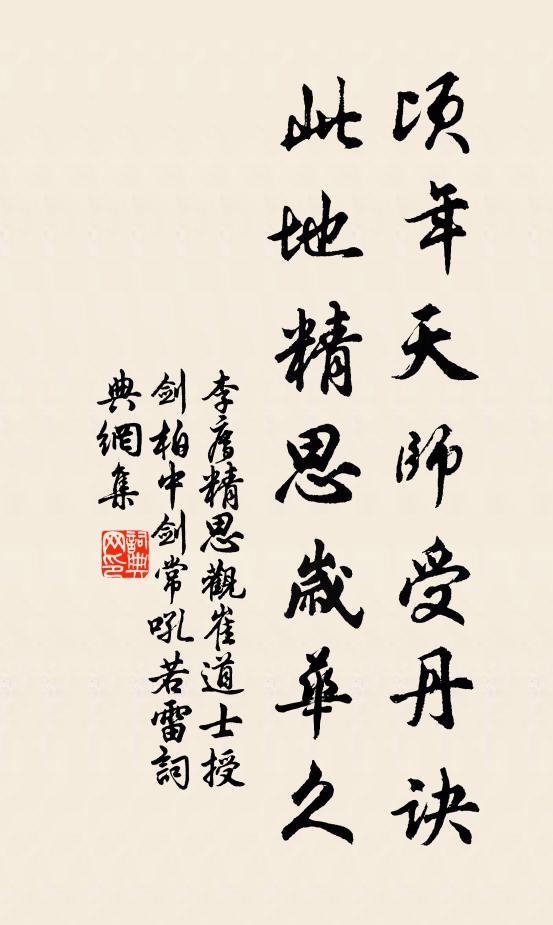 頃年天師受丹訣
此地精思歲華久
李廌精思觀崔道士授
劍柏中劍常吼若雷詞
典網集
詞典
网印